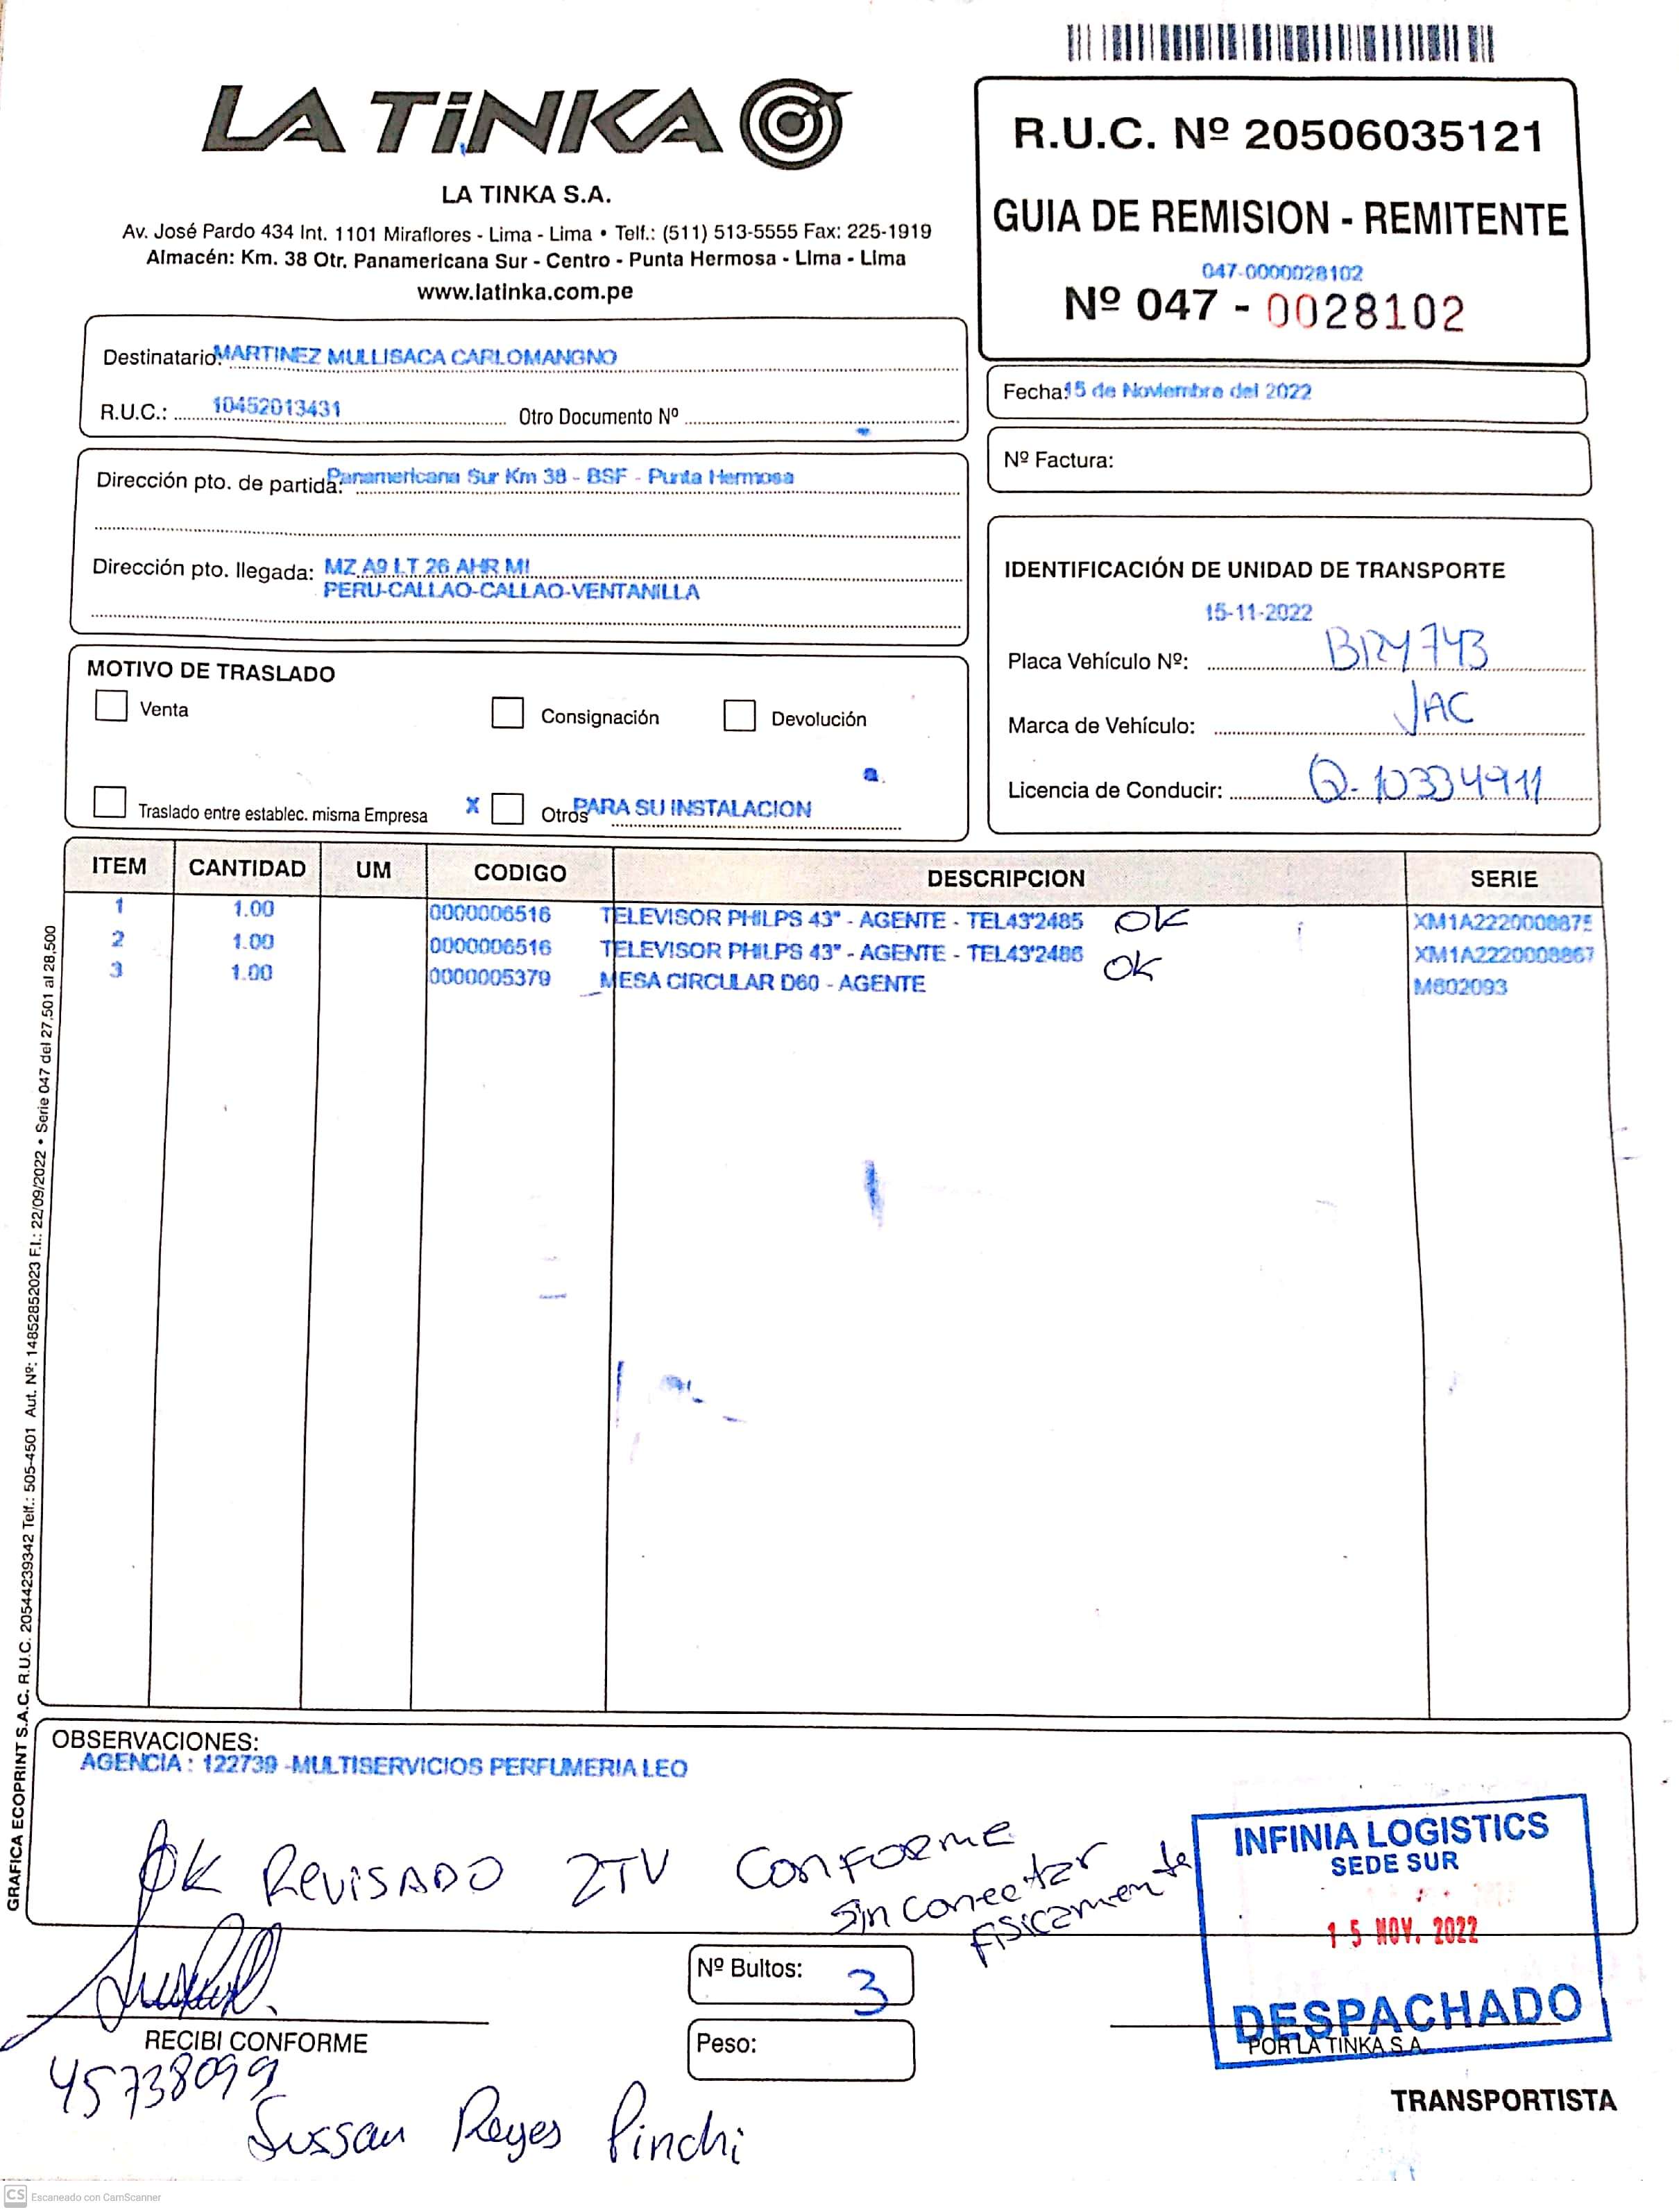 LA TiNKA
LA TINKA S.A.
Av. José Pardo 434 Int. 1101 Miraflores - Lima - Lima • Telf.: (511) 513-5555 Fax: 225-1919
Almacén: Km. 38 Otr. Panamericana Sur - Centro - Punta Hermosa - Lima - Lima
www.latinka.com.pe
R.U.C. Nº 20506035121
GUIA DE REMISION - REMITENTE
047-0000028102
Nº 047 - 0028102
Destinatario: MARTINEZ MULLISACA CARLOMANGNO
R.U.C.: 10452013431 Otro Documento Nº
Fecha: 15 de Noviembre del 2022
Nº Factura:
Dirección pto. de partida: Panamericana Sur Km 38 - BSF - Punta Hermosa
Dirección pto. llegada: MZ A9 LT 26 AHR MI
PERU-CALLAO-CALLAO-VENTANILLA
IDENTIFICACIÓN DE UNIDAD DE TRANSPORTE
15-11-2022
Placa Vehículo Nº: BRY743
Marca de Vehículo: JAC
Licencia de Conducir: Q-10334911
MOTIVO DE TRASLADO
Venta Consignación Devolución
Traslado entre establec. misma Empresa X Otros PARA SU INSTALACION
ITEM CANTIDAD UM CODIGO DESCRIPCION SERIE
1 1.00 0000006516 TELEVISOR PHILPS 43" - AGENTE - TEL43'2485 OK XM1A2220008875
2 1.00 0000006516 TELEVISOR PHILPS 43" - AGENTE - TEL43'2486 OK XM1A2220008867
3 1.00 0000005379 MESA CIRCULAR D60 - AGENTE M602093
GRAFICA ECOPRINT S.A.C. R.U.C. 20544239342 Telf.: 505-4501 Aut. Nº: 14852852023 F.I.: 22/09/2022 • Serie 047 del 27,501 al 28,500
OBSERVACIONES:
AGENCIA : 122739 -MULTISERVICIOS PERFUMERIA LEO
OK REVISADO 2TV CONFORME
Sin conectar
FISICAMENTE
INFINIA LOGISTICS
SEDE SUR
15 NOV. 2022
DESPACHADO
Nº Bultos: 3
Peso:
RECIBI CONFORME
POR LA TINKA S.A.
45738099
Sussan Reyes Pinchi
TRANSPORTISTA
CS Escaneado con CamScanner